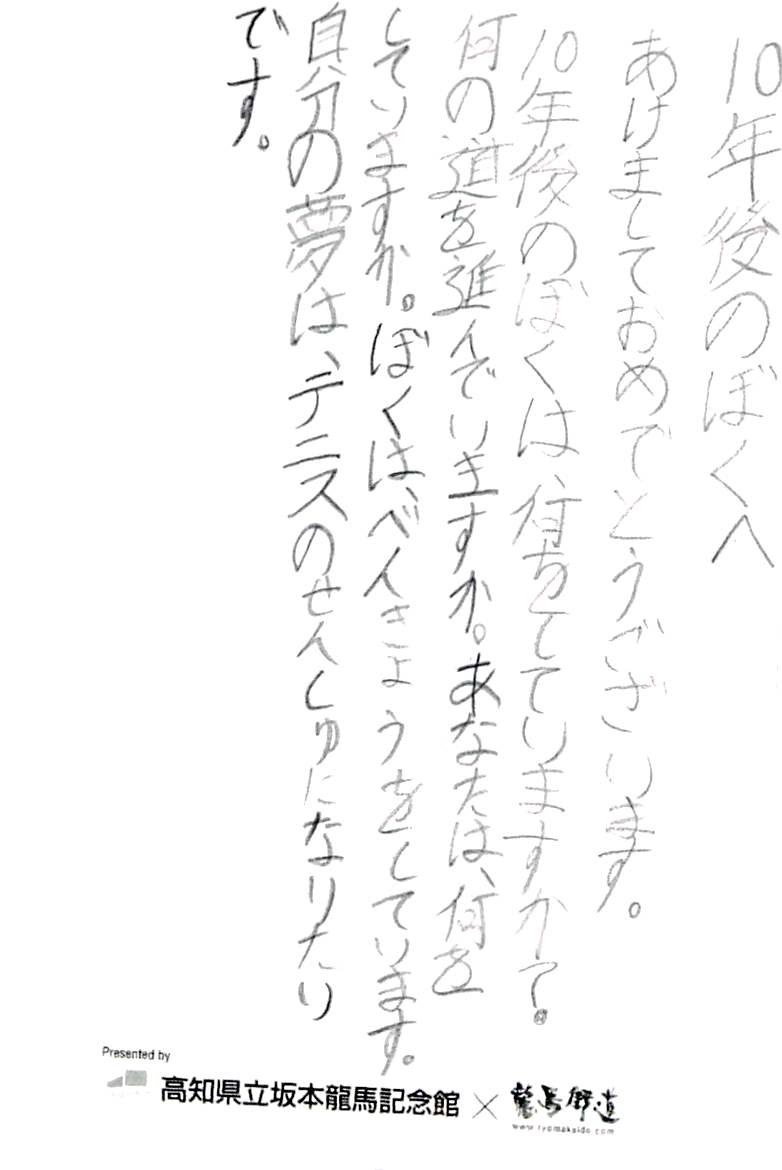 10年後のぼくへ
あけましておめでとうございます。
10年後のぼくは、何をしていますか?。
何の道を進んでいますか。あなたは、何を
していますか。ぼくは、べんきょうをしています。
自分の夢は、テニスのせんしゅになりたい
です。
Presented by
高知県立坂本龍馬記念館 × 龍馬街道
www.ryomakaido.com